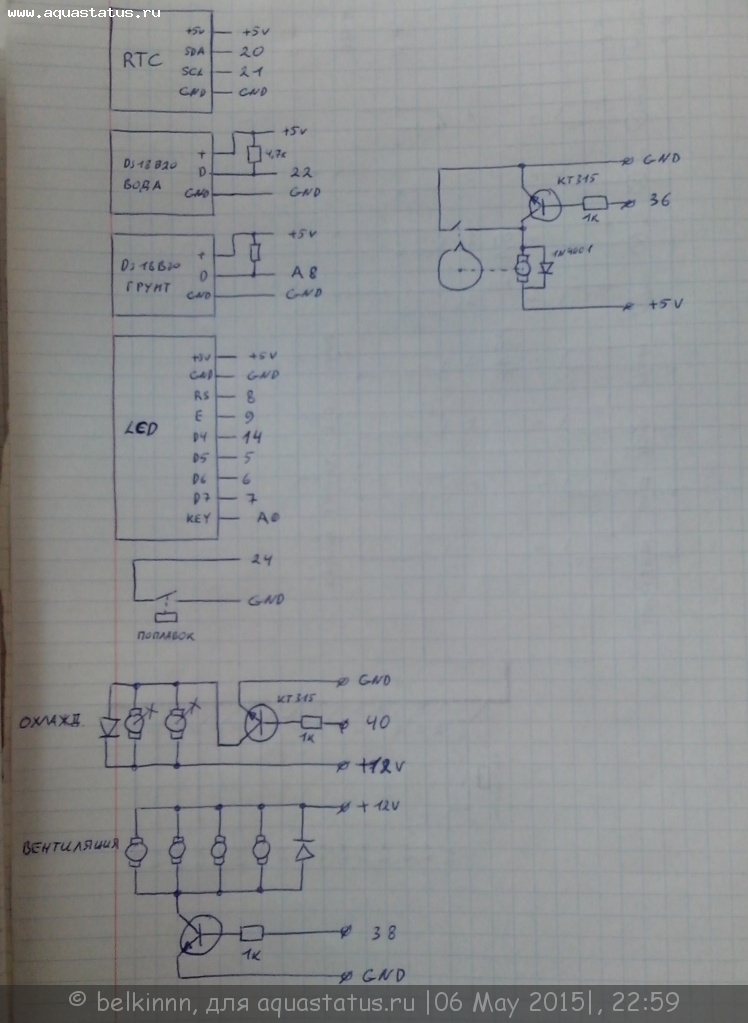 www.aquastatus.ru
RTC
+5V +5V
SDA 20
SCL 21
GND GND
DS18B20
ВОДА
+ +5V
4,7к
D 22
GND GND
DS18B20
ГРУНТ
+ +5V
D A8
GND GND
LED
+5V +5V
GND GND
RS 8
E 9
D4 14
D5 5
D6 6
D7 7
KEY A0
24
GND
ПОПЛАВОК
GND
КТ315
36
1К
1N4001
+5V
ОХЛАЖД.
GND
КТ315
40
1К
+12V
ВЕНТИЛЯЦИЯ
+12V
38
1К
GND
© belkinnn, для aquastatus.ru |06 May 2015|, 22:59